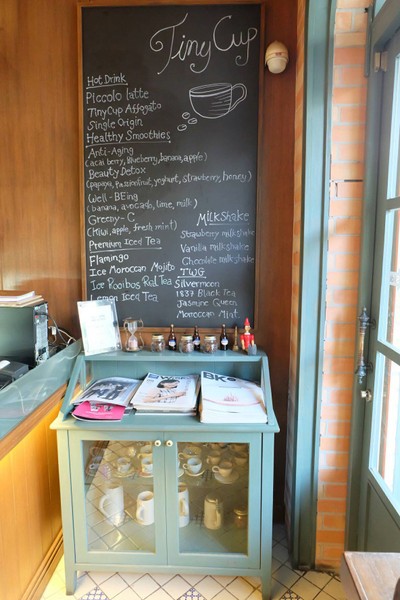 Tiny Cup
Hot Drink
Piccolo latte
TinyCup Affogato
Single Origin
Healthy Smoothies
Anti-Aging
(acai berry, blueberry, banana, apple)
Beauty Detox
(papaya, passionfruit, yoghurt, strawberry, honey)
Well-BEing
(banana, avocado, lime, milk)
Greeny-C
(kiwi, apple, fresh mint)
Premium Iced Tea
Flamingo
Ice Moroccan Mojito
Ice Rooibos Real Tea
Lemon Iced Tea
Milkshake
Strawberry milkshake
Vanilla milkshake
Chocolate milkshake
TWG
Silvermoon
1837 Black Tea
Jasmine Queen
Moroccan Mint
BK